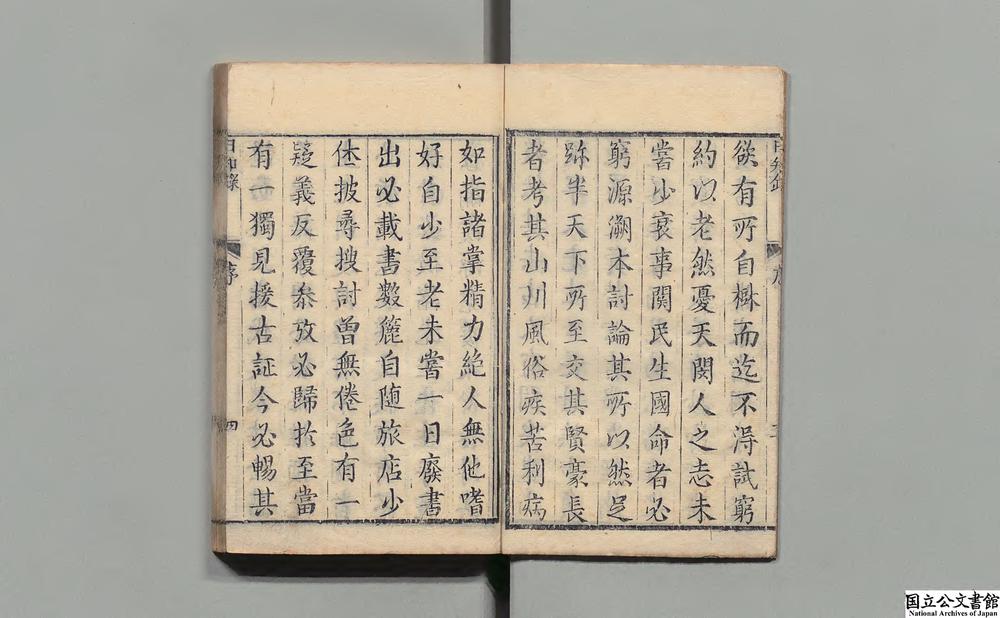 欲有所自樹而迄不得試窮
約以老然憂天閔人之志未
嘗少衰事関民生國命者必
窮源溯本討論其所以然足
跡半天下所至交其賢豪長
者考其山川風俗疾苦利病
如指諸掌精力絶人無他嗜
好自少至老未嘗一日廢書
出必載書數簏自随旅店少
休披尋搜討曾無倦色有一
疑義反覆叅攷必歸扵至當
有一獨見援古証今必暢其
日知錄
序
四
国立公文書館
National Archives of Japan